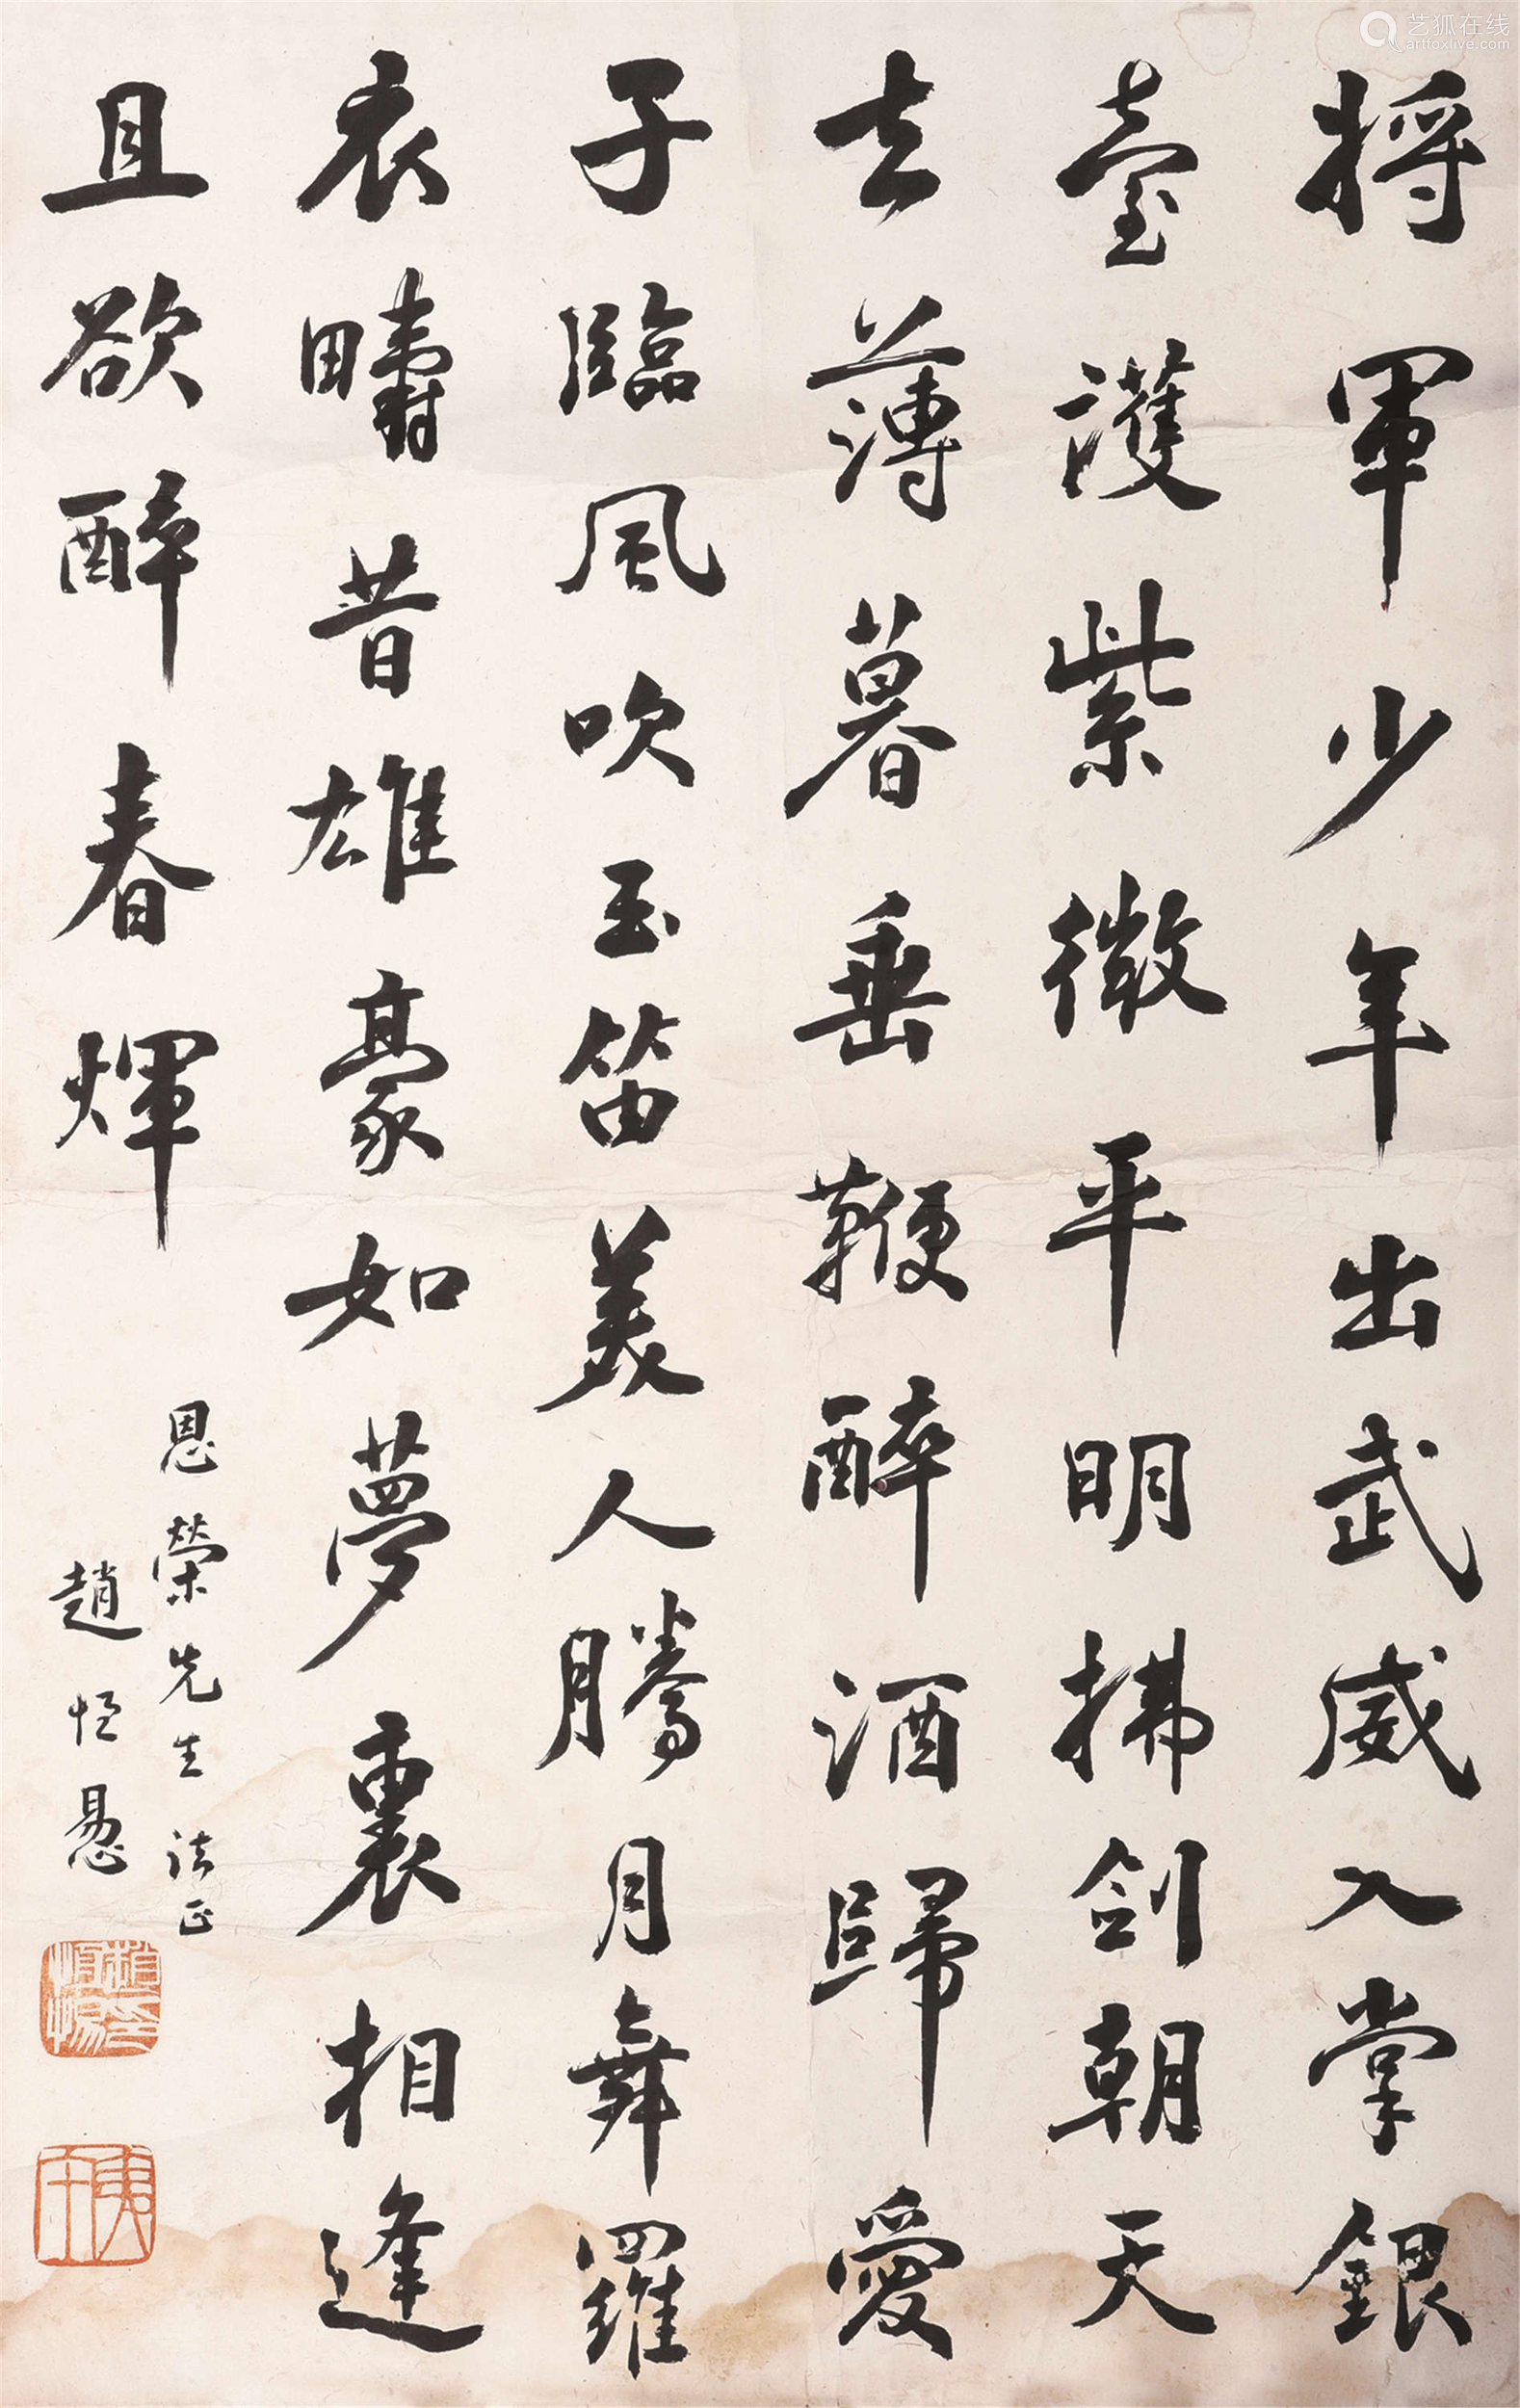 将軍少年出武威入掌銀
臺護紫微平明拂剑朝天
去薄暮垂鞭醉酒歸愛
子臨風吹玉笛美人騰月舞羅
衣疇昔雄豪如夢裏相逢
且欲醉春煇
恩榮先生法正
趙恒惖
艺狐在线
artfoxlive.com